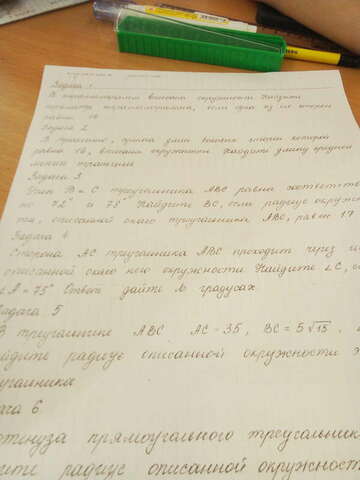 Задача 1
В параллелограмм вписана окружность. Найдите
периметр параллелограмма, если одна из его сторон
равна
Задача 2
В трапецию, сумма длин боковых сторон которой
равна 18, вписана окружность. Находите длину средней
линии трапеции
Задача 3
Углы В и С треугольника АВС равна соответств
но 72° и 78° Найдите ВС, если радиус окруж
та, описанной около треугольника АВС, равен 17
Задача 4
Сторона АС треугольника АВС проходит через
описанной около него окружности Найдите ∠С, е
∠А = 75° Ответ дайте в градусах
Задача 5
В треугольнике АВС АС=35, ВС=5√15,
айдите радиус описанной окружности э
угольника
ача 6
отенуза прямоугольного треугольник
ите радиус описанной окружност